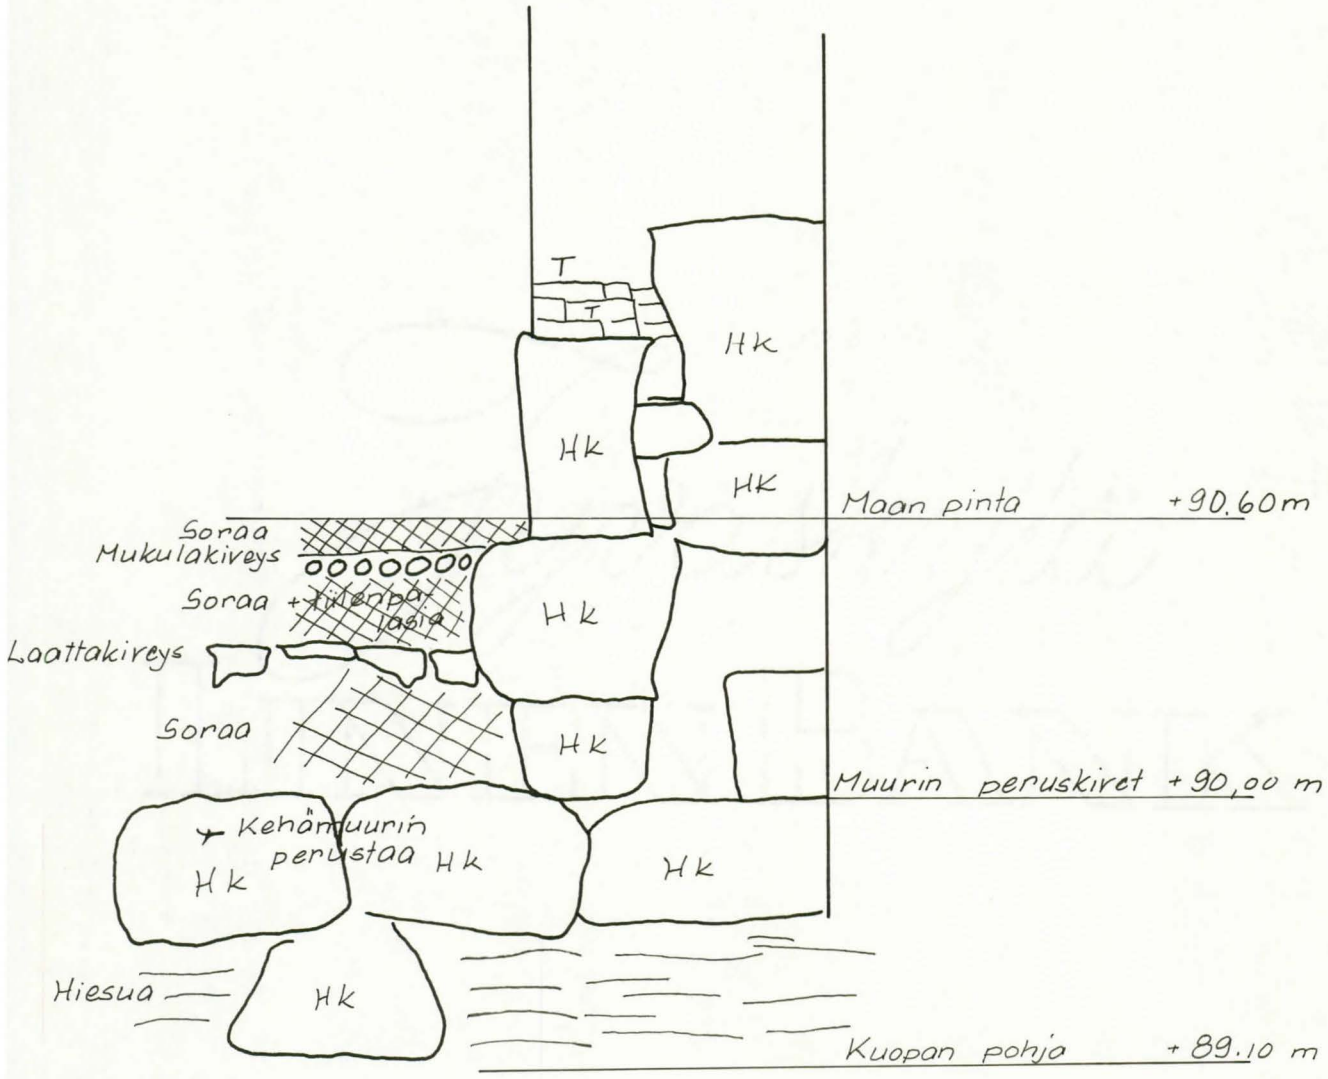 T
T
Hk
Hk
Hk
Maan pinta +90.60 m
Soraa
Mukulakiveys
Soraa + tiilenpa-
lasia
Hk
Laattakiveys
Soraa
Hk
Muurin peruskivet +90,00 m
Kehämuurin
perustaa
Hk
Hk
Hk
Hiesua
Hk
Kuopan pohja +89.10 m